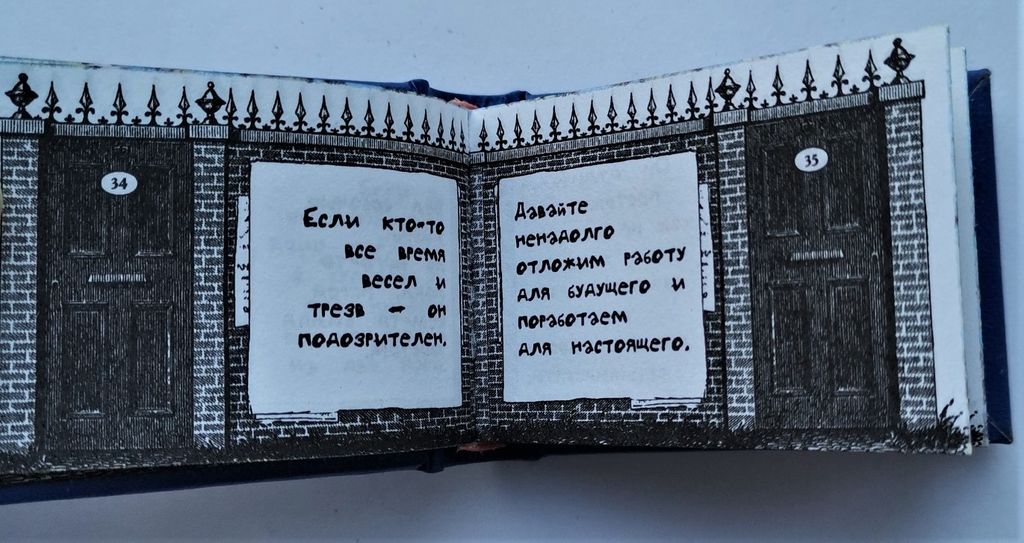 34
Если кто-то
все время
весел и
трезв - он
подозрителен.
35
Давайте
ненадолго
отложим работу
для будущего и
поработаем
для настоящего.